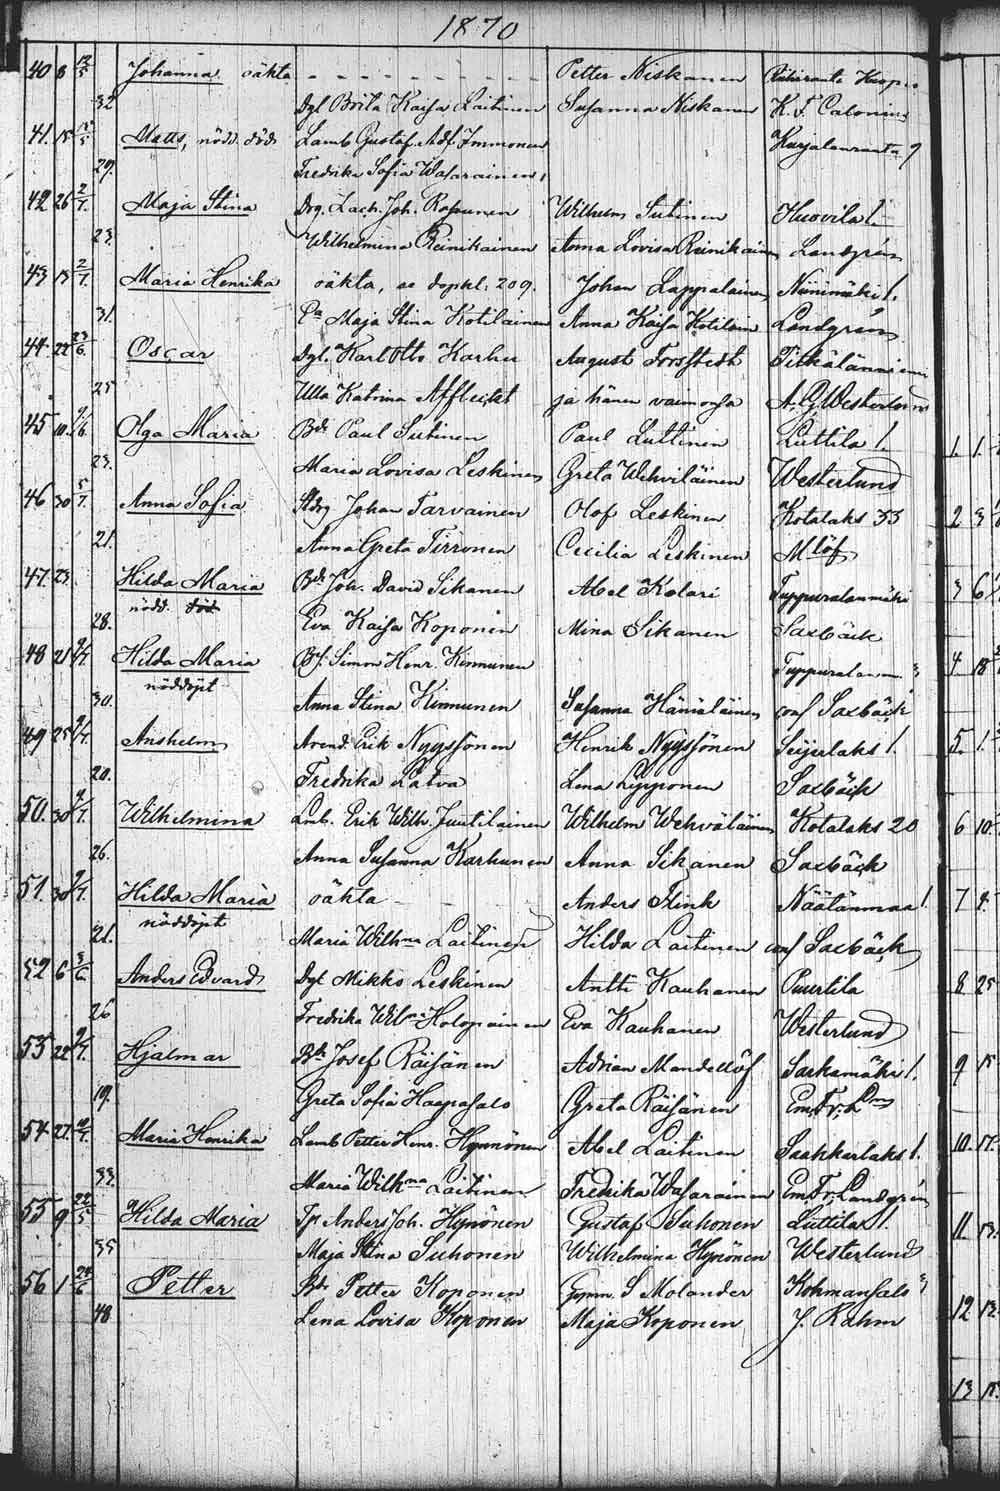 1870
40 8 12/5 Johanna oäkta Petter Niskanen
32 Dgl Brita Kaisa Laitinen Susanna Niskanen K. F. Calonius
41. 15 15/5 Matts, nödd. död Lamb Gustaf Adf Immonen Karjalanranta 9
29. Fredrika Sofia Wasarainen
42 26 2/7. Maja Stina Drg. Zach. Joh. Rossunen Wilhelm Sutinen Huovila 1.
23. Wilhelmina Reinikainen Anna Lovisa Reinikäinen Landgrén
43 13 2/7. Maria Henrika oäkta, se dopkl: 209. Johan Lappalainen Niinimäki 1.
31. Pa Maja Stina Kotilainen Anna Kaisa Kotilain Landgrén
44 22 23/6. Oscar Dgl. Karl Otto Karhu August Forsstedt Pitkälänniemi
25 Ulla Katrina Affleckt ja hänen vaimonsa A. G. Westerlund
45 10. /6. Olga Maria Bd. Paul Sutinen Paul Luttinen Luttila 1.
23. Maria Lovisa Leskinen Greta Wehviläinen Westerlund
46 30 5/7. Anna Sofia Stdrg Johan Tarvainen Olof Leskinen Kotalaks 33
21. Anna Greta Tirronen Cecilia Leskinen M löf
47. 23. Hilda Maria Bd. Joh. David Sikanen Abel Kolari Tuppuralanmäki
nödd. död
28. Eva Kaisa Koponen Mina Sikanen Saxbäck
48 21 9/7. Hilda Maria Bs. Simon Henr. Kinnunen
nöddöpt
30. Anna Stina Kinnunen Susanna Hämäläinen conf Saxbäck
49 25 9/7. Anshelm Arend. Erik Nyyssönen Henrik Nyyssönen Seijerlaks 1.
20. Fredrika Latva Lena Lypponen Saxbäck
50. 30 9/7. Wilhelmina Lmb. Erik Wilh. Juutilainen Wilhelm Wehviläinen Kotalaks 20
26. Anna Susanna Karhunen Anna Sikanen Saxbäck
51. 30 9/7. Hilda Maria oäkta Anders Flink Näätänmaa 1.
nöddöpt
21. Maria Wilhma Laitinen Hilda Laitinen conf Saxbäck
52 6 3/6. Anders Edvard Dgl Mikko Leskinen Antti Kauhanen Puurtila
26 Fredrika Wilma Holopainen Eva Kauhanen Westerlund
53 22 9/7. Hjalmar Bd Josef Räisänen Adrian Mandellöf Sarkamäki 1.
19. Greta Sofia Haapasalo Greta Räisänen
54 27. 9/7. Maria Henrika Lamb Petter Henr. Hynnönen Abel Laitinen Saahkarlaks 1.
33. Maria Wilhma Laitinen Fredrika Wasarainen Em. Fr. Landgrén
55 9 22/5 Hilda Maria Tp Anders Joh. Hynönen Gustaf Suhonen Luttila 1.
35 Maja Stina Suhonen Wilhelmina Hynönen Westerlund
56 1 24/6 Petter Bd. Petter Koponen Gymn. S Molander Kohmansalo 3
48 Lena Lovisa Koponen Maja Koponen J. Rahm
1. 1.
2 3
3 6
4 18
5. 1.
6 10
7
8 25
9 15
10. 17.
11. 13.
12 12.
13 15.